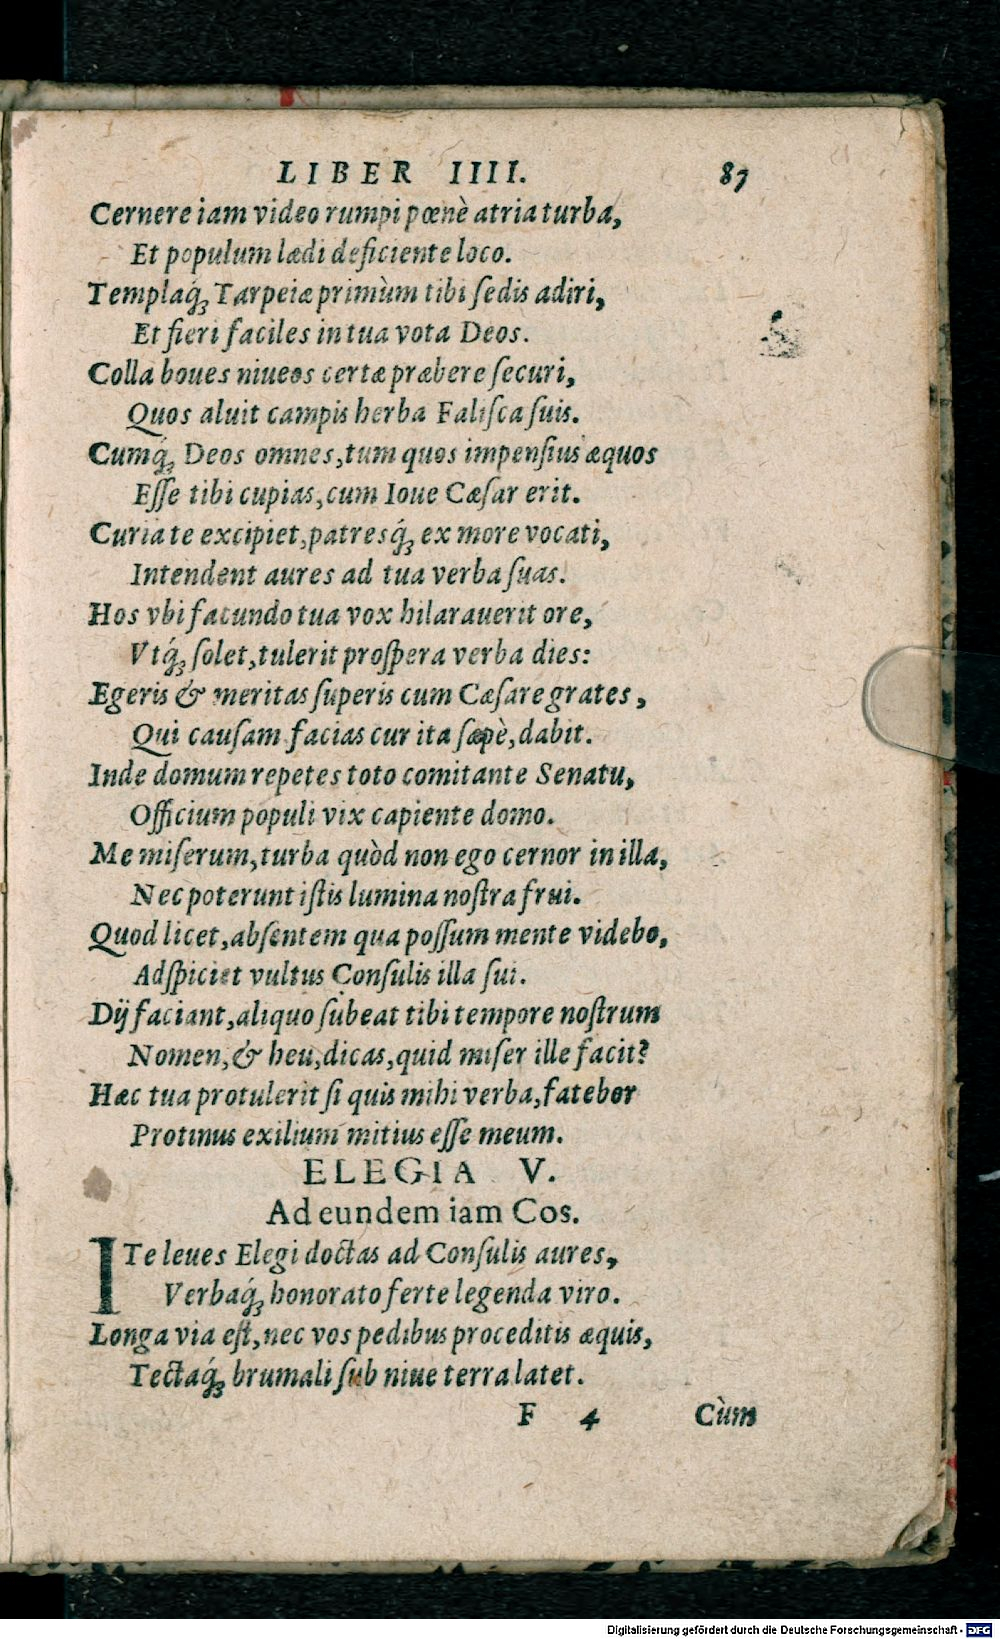 LIBER IIII. 87
Cernere iam video rumpi pœnè atria turba,
Et populum lædi deficiente loco.
Templaq́ꝫ Tarpeiæ primùm tibi ſedis adiri,
Et fieri faciles in tua vota Deos.
Colla boues niueos certæ præbere ſecuri,
Quos aluit campis herba Faliſca ſuis.
Cumq́ꝫ Deos omnes, tum quos impenſius æquos
Eſſe tibi cupias, cum Ioue Cæſar erit.
Curia te excipiet, patresq́ꝫ ex more vocati,
Intendent aures ad tua verba ſuas.
Hos vbi facundo tua vox hilarauerit ore,
Vtq́ꝫ ſolet, tulerit proſpera verba dies:
Egeris & meritas ſuperis cum Cæſare grates,
Qui cauſam facias cur ita ſæpè, dabit.
Inde domum repetes toto comitante Senatu,
Officium populi vix capiente domo.
Me miſerum, turba quòd non ego cernor in illa,
Nec poterunt iſtis lumina noſtra frui.
Quod licet, abſentem qua poſſum mente videbo,
Adſpiciet vultus Conſulis illa ſui.
Dij faciant, aliquo ſubeat tibi tempore noſtrum
Nomen, & heu, dicas, quid miſer ille facit?
Hæc tua protulerit ſi quis mihi verba, fatebor
Protinus exilium mitius eſſe meum.
ELEGIA V.
Ad eundem iam Cos.
ITe leues Elegi doctas ad Conſulis aures,
Verbaq́ꝫ honorato ferte legenda viro.
Longa via eſt, nec vos pedibus proceditis æquis,
Tectaq́ꝫ brumali ſub niue terra latet.
F 4 Cùm
Digitalisierung gefördert durch die Deutsche Forschungsgemeinschaft - DFG